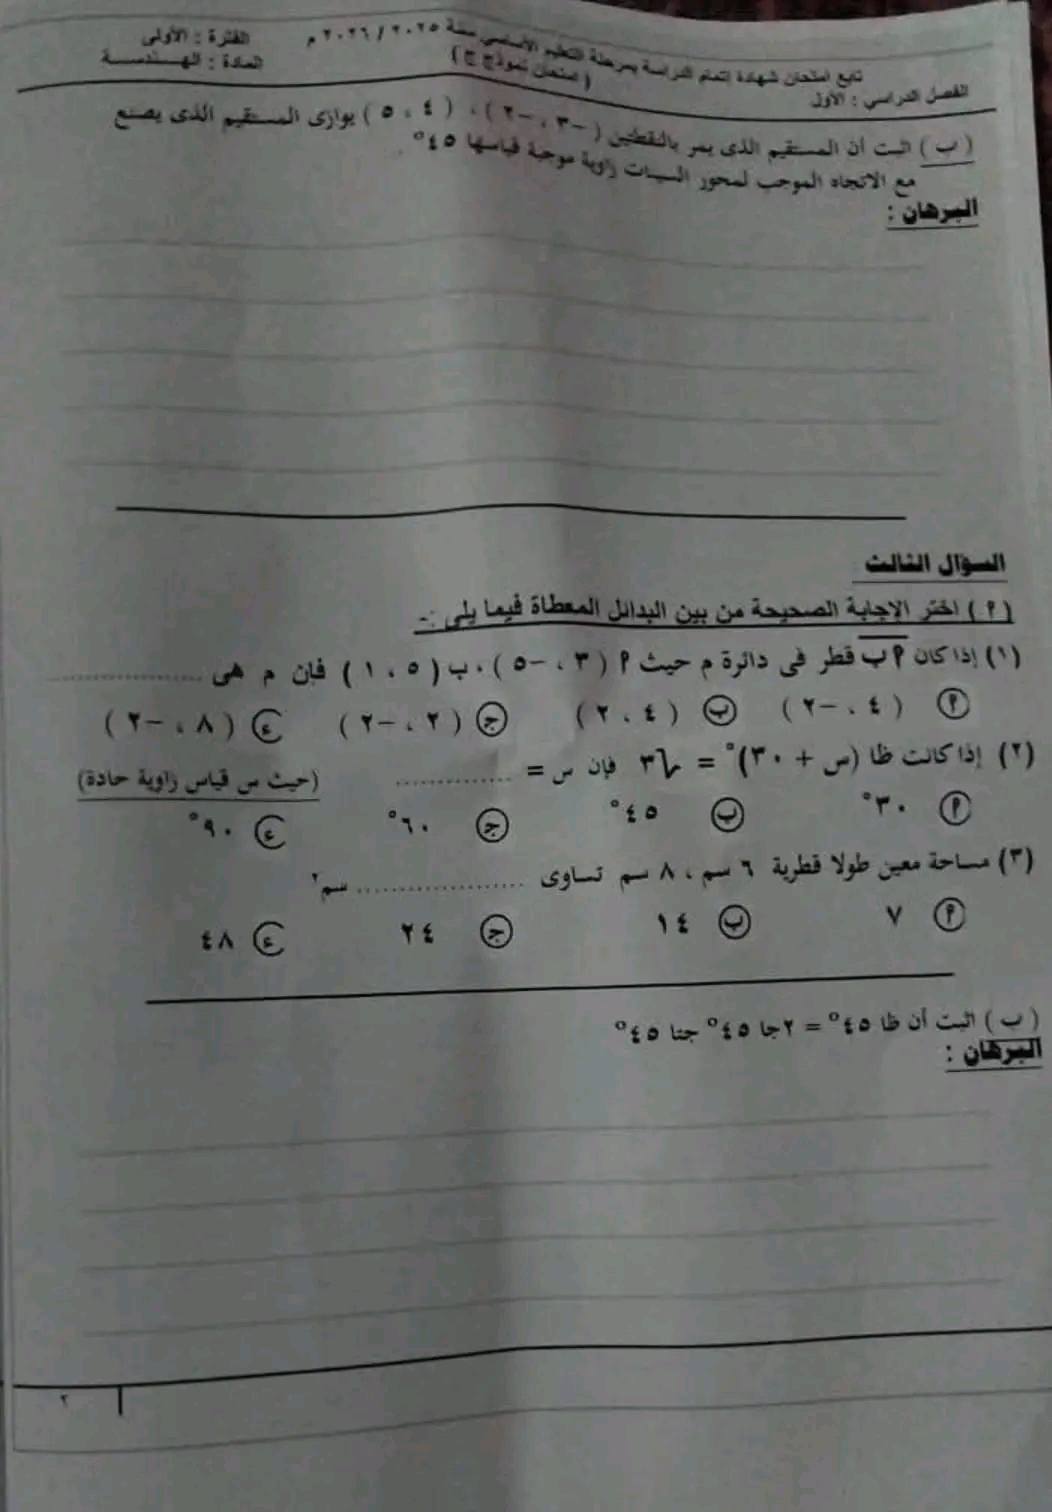 تابع امتحان شهادة إتمام الدراسة بمرحلة التعليم الأساسي سنة ٢٠٢٥ / ٢٠٢٦ م الفترة : الأولى
الفصل الدراسي : الأول ( امتحان نموذج ج ) المادة : الهندسة
( ب ) اثبت أن المستقيم الذى يمر بالنقطتين ( -٣ ، -٢ ) ، ( ٤ ، ٥ ) يوازى المستقيم الذى يصنع
مع الاتجاه الموجب لمحور السينات زاوية موجبة قياسها ٤٥°
البرهان :
السؤال الثالث
( أ ) اختر الإجابة الصحيحة من بين البدائل المعطاة فيما يلى :-
(١) إذا كان أب قطر فى دائرة م حيث أ ( ٣ ، -٥ ) ، ب ( ٥ ، ١ ) فإن م هى ....................
أ ( ٤ ، -٢ ) ب ( ٤ ، ٢ ) ج ( ٢ ، -٢ ) د ( ٨ ، -٢ )
(٢) إذا كانت ظا (س + ٣٠)° = √٣ فإن س = ............... (حيث س قياس زاوية حادة)
أ ٣٠° ب ٤٥° ج ٦٠° د ٩٠°
(٣) مساحة معين طولا قطرية ٦ سم ، ٨ سم تساوى .................... سم٢
أ ٧ ب ١٤ ج ٢٤ د ٤٨
( ب ) اثبت أن ظا ٤٥° = ٢جا ٤٥° جتا ٤٥°
البرهان :
٢